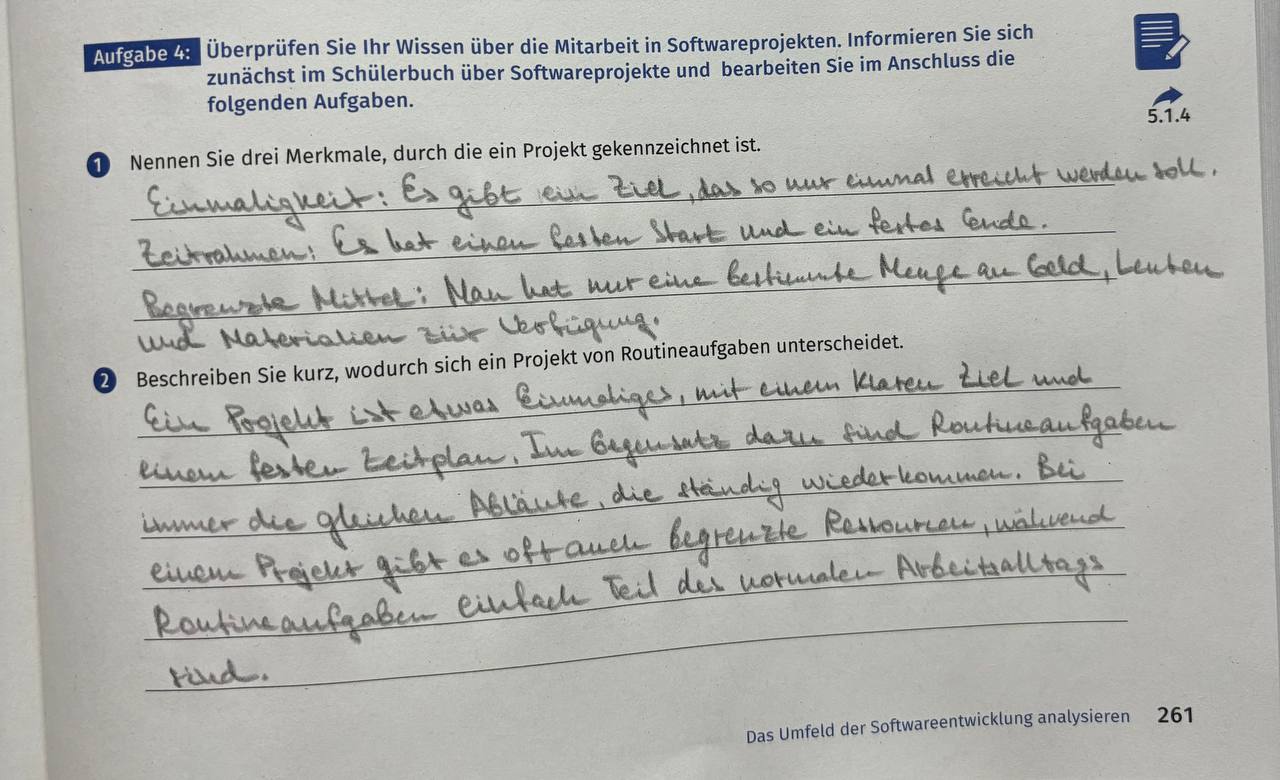 Aufgabe 4: Überprüfen Sie Ihr Wissen über die Mitarbeit in Softwareprojekten. Informieren Sie sich
zunächst im Schülerbuch über Softwareprojekte und bearbeiten Sie im Anschluss die
folgenden Aufgaben.
5.1.4
1 Nennen Sie drei Merkmale, durch die ein Projekt gekennzeichnet ist.
Einmaligkeit: Es gibt ein Ziel, das so nur einmal erreicht werden soll.
Zeitrahmen: Es hat einen festen Start und ein festes Ende.
Begrenzte Mittel: Man hat nur eine bestimmte Menge an Geld, Leuten
und Materialien zür Verfügung.
2 Beschreiben Sie kurz, wodurch sich ein Projekt von Routineaufgaben unterscheidet.
Ein Projekt ist etwas Einmaliges, mit einem klaren Ziel und
einem festen Zeitplan. Im Gegensatz dazu sind Routineaufgaben
immer die gleichen Abläufe, die ständig wiederkommen. Bei
einem Projekt gibt es oft auch begrenzte Ressourcen, während
Routineaufgaben einfach Teil des normalen Arbeitsalltags
sind.
Das Umfeld der Softwareentwicklung analysieren 261